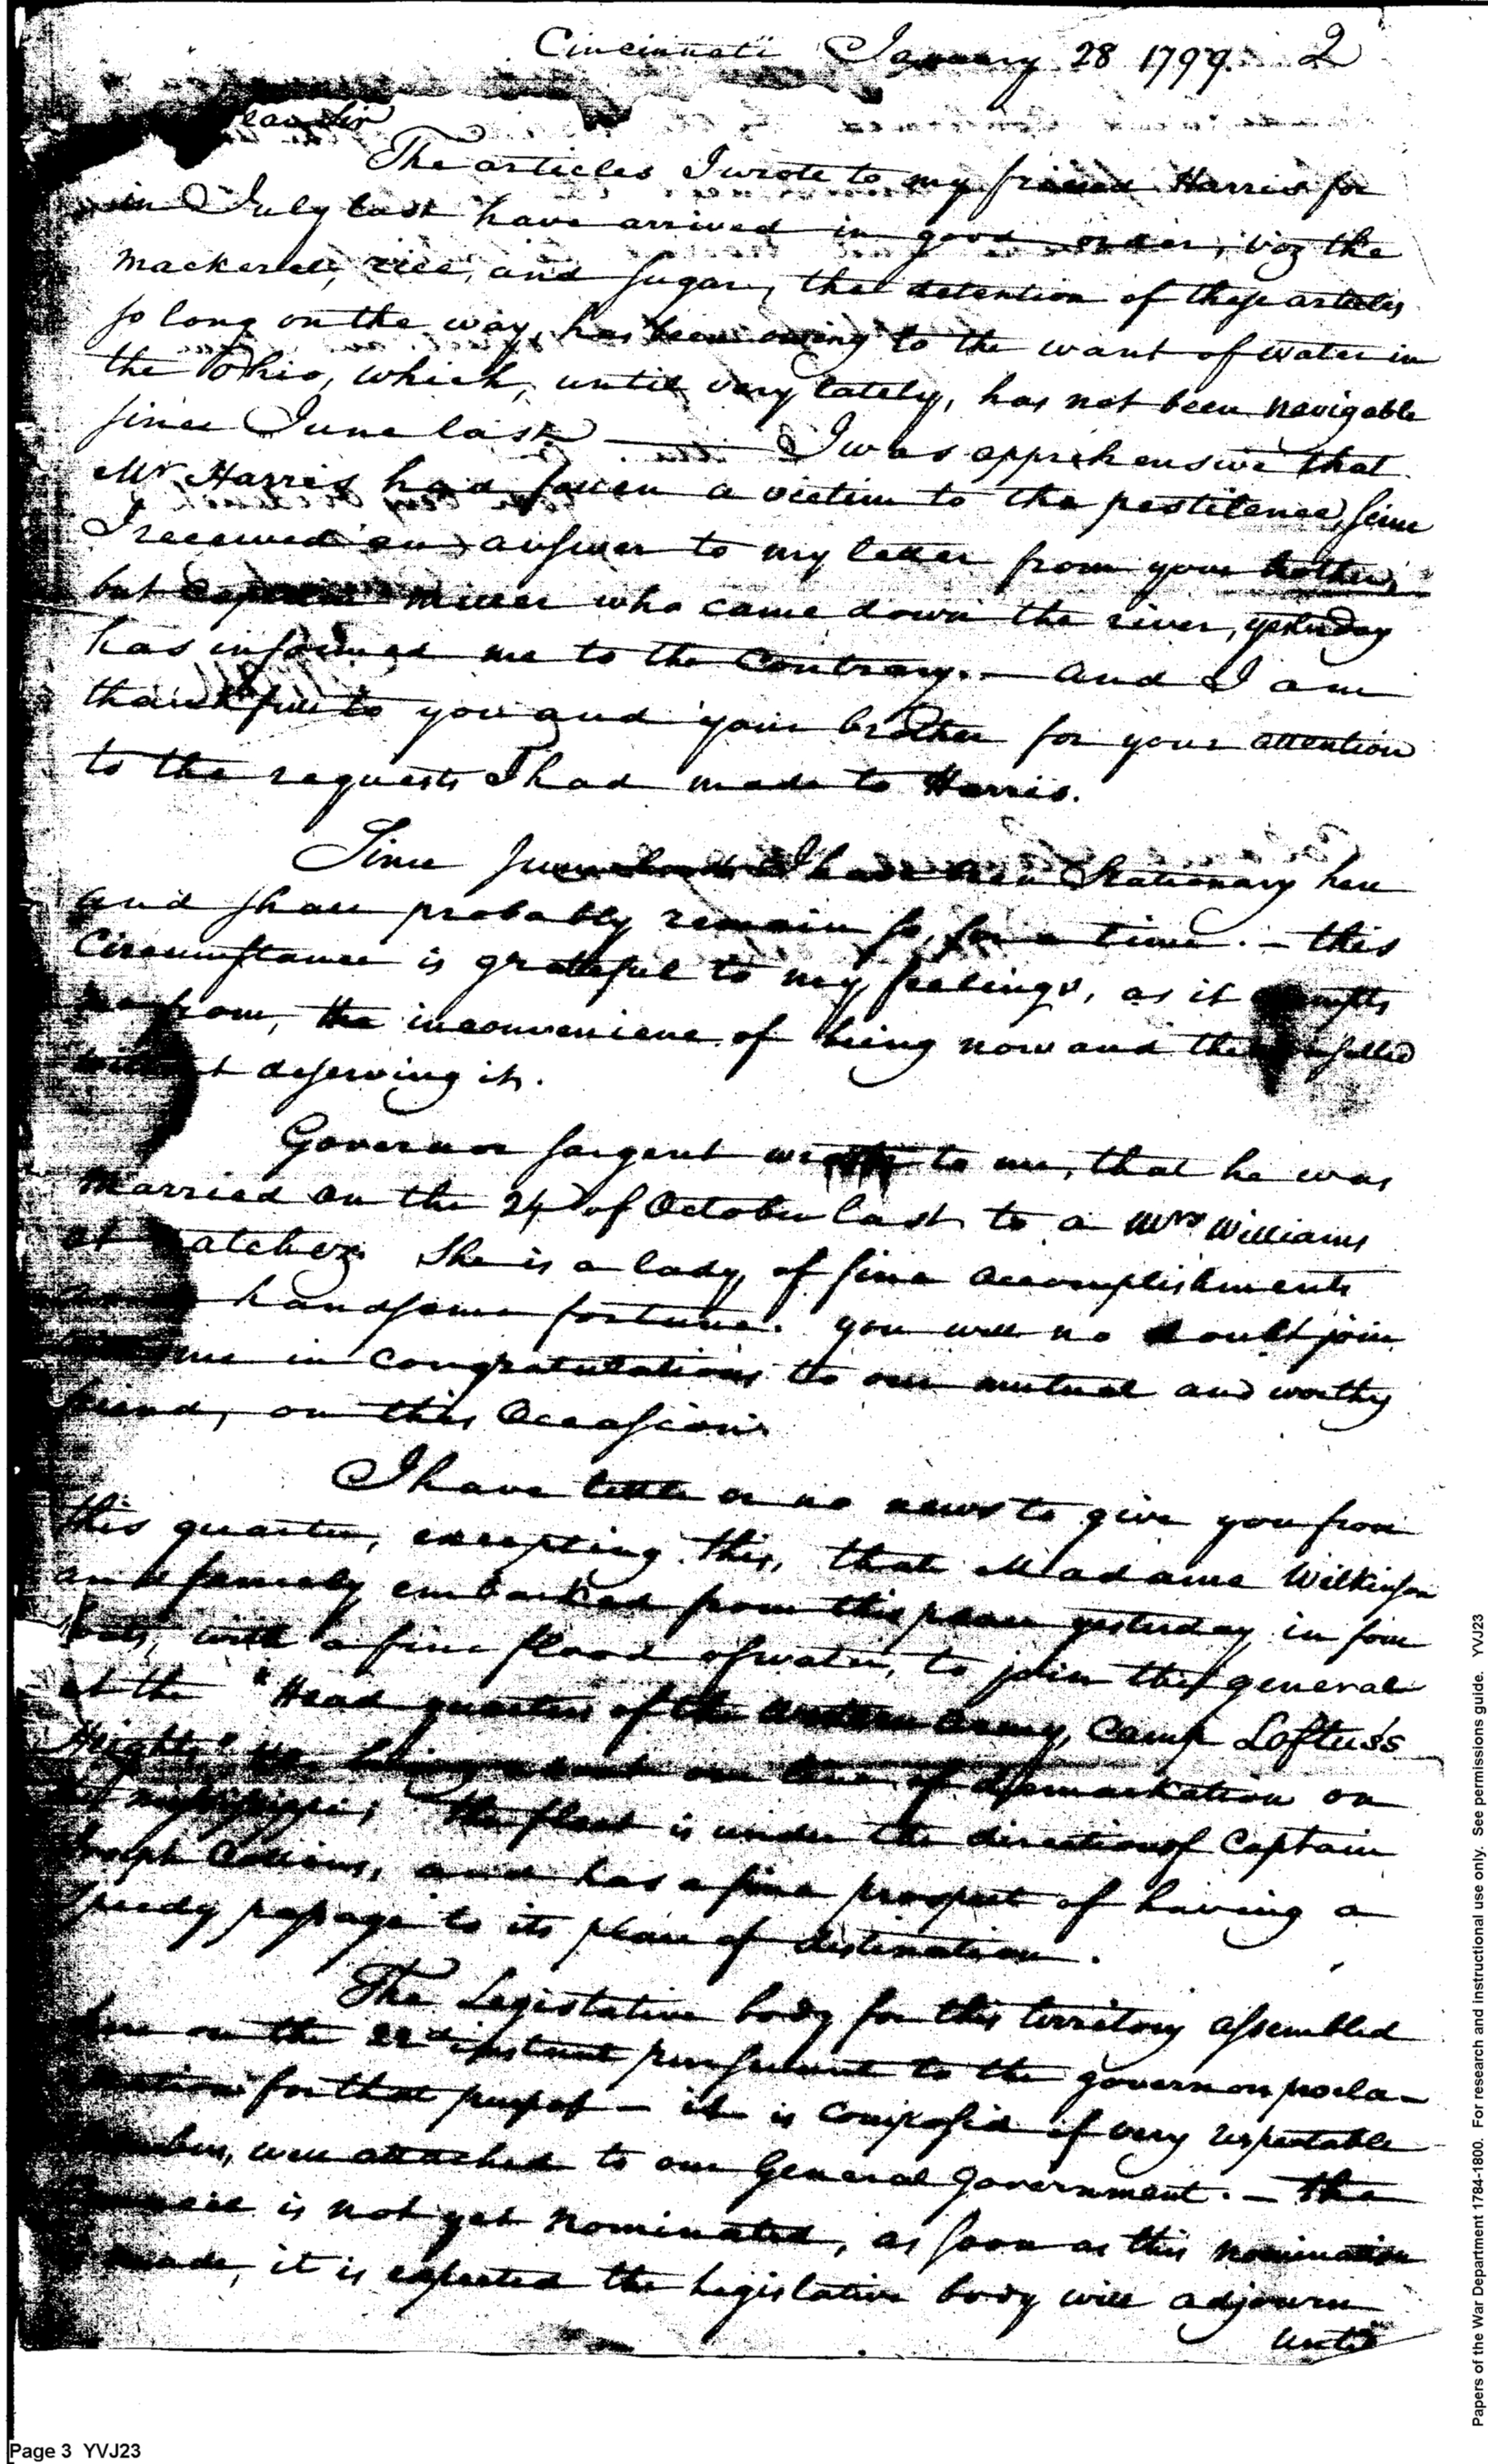 Cincinnati January 28 1799. 2
ear Sir
The articles I wrote to my friend Harris for
in July last have arrived in good order, viz the
mackerel, rice, and sugar, the detention of these articles
so long on the way, has been owing to the want of water in
the Ohio, which, until very lately, has not been navigable
since June last — I was apprehensive that
Mr Harris had fallen a victim to the pestilence, since
I received an answer to my letter from your brother,
but Captain Miller who came down the river, yesterday
has informed me to the contrary. — and I am
thankful to you and your brother for your attention
to the requests I had made to Harris.
Since June last I have been Stationary here
and shall probably remain so, for a time. — this
Circumstance is grateful to my feelings, as it
from, the inconvenience of being now and then
deserving it.
Governor Sargent wrote to me, that he was
married on the 24 of October last to a Mrs Williams
at atchez. She is a lady of fine accomplishments
handsome fortune. you will no doubt join
me in congratulations to our mutual and worthy
friend, on this Occasion.
I have little or no news to give you from
this quarter, excepting this, that Madame Wilkinson
and family embarked from this place yesterday in four
boats, with a fine flood of water, to join the general
at the "Head quarters of the Western Army, Camp Loftus's
Heights" He being about our line of demarkation on
Mississippi; the fleet is under the direction of Captain
Joseph Collins, and has a fine prospect of having a
speedy passage to its place of destination.
The Legislative body for this territory assembled
here on the 22d instant pursuant to the governors procla-
mation for that purpose — it is composed of very respectable
members, well attached to our General Government. — The
Council is not yet nominated, as soon as this nomination
made, it is expected the Legislative body will adjourn
until
Papers of the War Department 1784-1800. For research and instructional use only. See permissions guide. YVJ23
Page 3 YVJ23